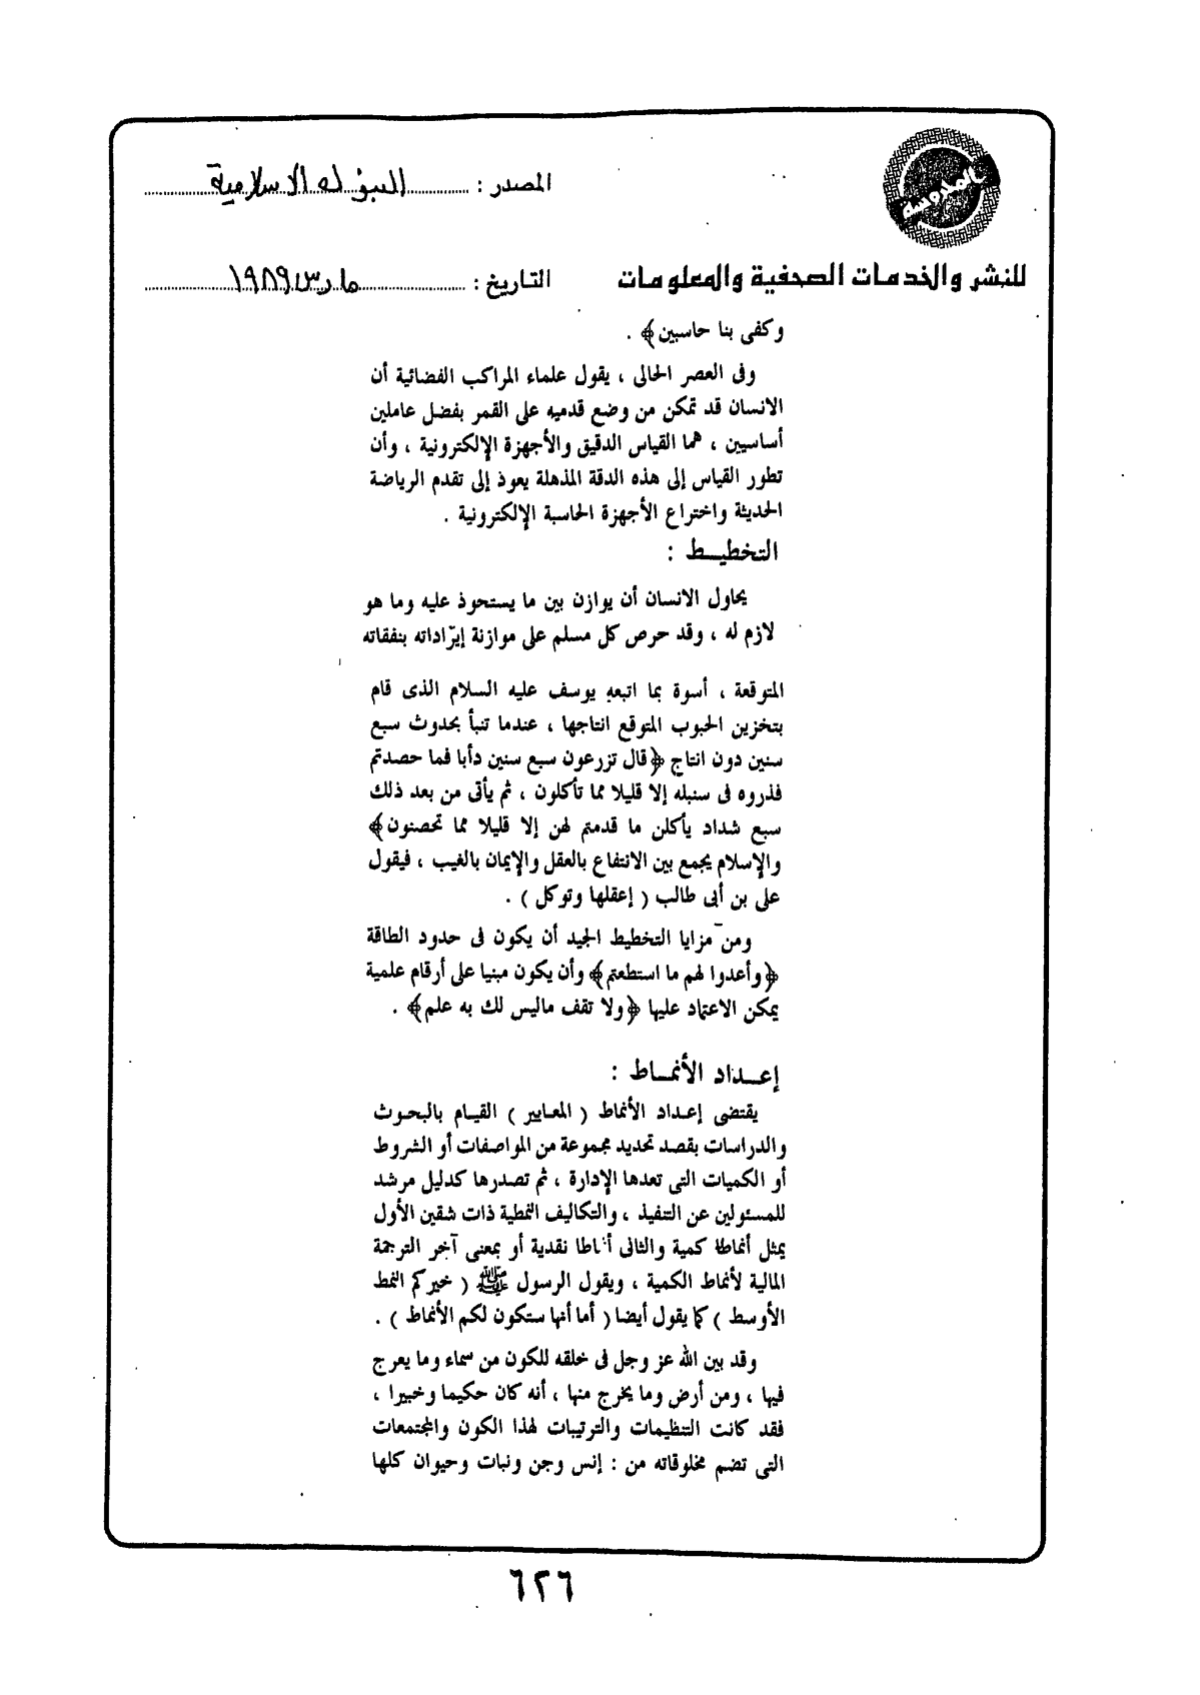 المحروسة
المصدر : البنوك الاسلامية
للنشر والخدمات الصحفية والمعلومات
التاريخ : مارس ١٩٨٩
وكفى بنا حاسبين﴾ .
وفى العصر الحالى ، يقول علماء المراكب الفضائية أن
الانسان قد تمكن من وضع قدميه على القمر بفضل عاملين
أساسيين ، هما القياس الدقيق والأجهزة الإلكترونية ، وأن
تطور القياس إلى هذه الدقة المذهلة يعوذ إلى تقدم الرياضة
الحديثة واختراع الأجهزة الحاسبة الإلكترونية .
التخطيـط :
يحاول الانسان أن يوازن بين ما يستحوذ عليه وما هو
لازم له ، وقد حرص كل مسلم على موازنة إيراداته بنفقاته
المتوقعة ، أسوة بما اتبعه يوسف عليه السلام الذى قام
بتخزين الحبوب المتوقع انتاجها ، عندما تنبأ بحدوث سبع
سنين دون انتاج ﴿قال تزرعون سبع سنين دأبا فما حصدتم
فذروه فى سنبله إلا قليلا مما تأكلون ، ثم يأتى من بعد ذلك
سبع شداد يأكلن ما قدمتم لهن إلا قليلا مما تحصنون﴾
والإسلام يجمع بين الانتفاع بالعقل والإيمان بالغيب ، فيقول
على بن أبى طالب ( إعقلها وتوكل ) .
ومن مزايا التخطيط الجيد أن يكون فى حدود الطاقة
﴿وأعدوا لهم ما استطعتم﴾ وأن يكون مبنيا على أرقام علمية
يمكن الاعتماد عليها ﴿ولا تقف ماليس لك به علم﴾ .
إعـداد الأنمـاط :
يقتضى إعداد الأنماط ( المعايير ) القيام بالبحوث
والدراسات بقصد تحديد مجموعة من المواصفات أو الشروط
أو الكميات التى تعدها الإدارة ، ثم تصدرها كدليل مرشد
للمسئولين عن التنفيذ ، والتكاليف النمطية ذات شقين الأول
يمثل أنماطا كمية والثانى أنماطا نقدية أو بمعنى آخر الترجمة
المالية لأنماط الكمية ، ويقول الرسول ﷺ ( خيركم النمط
الأوسط ) كما يقول أيضا ( أما أنها ستكون لكم الأنماط ) .
وقد بين الله عز وجل فى خلقه للكون من سماء وما يعرج
فيها ، ومن أرض وما يخرج منها ، أنه كان حكيما وخبيرا ،
فقد كانت التنظيمات والترتيبات لهذا الكون والمجتمعات
التى تضم مخلوقاته من : إنس وجن ونبات وحيوان كلها
٦٢٦